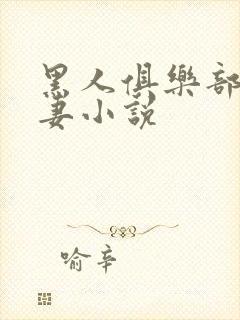 黑人俱樂部
妻小說
喻辛